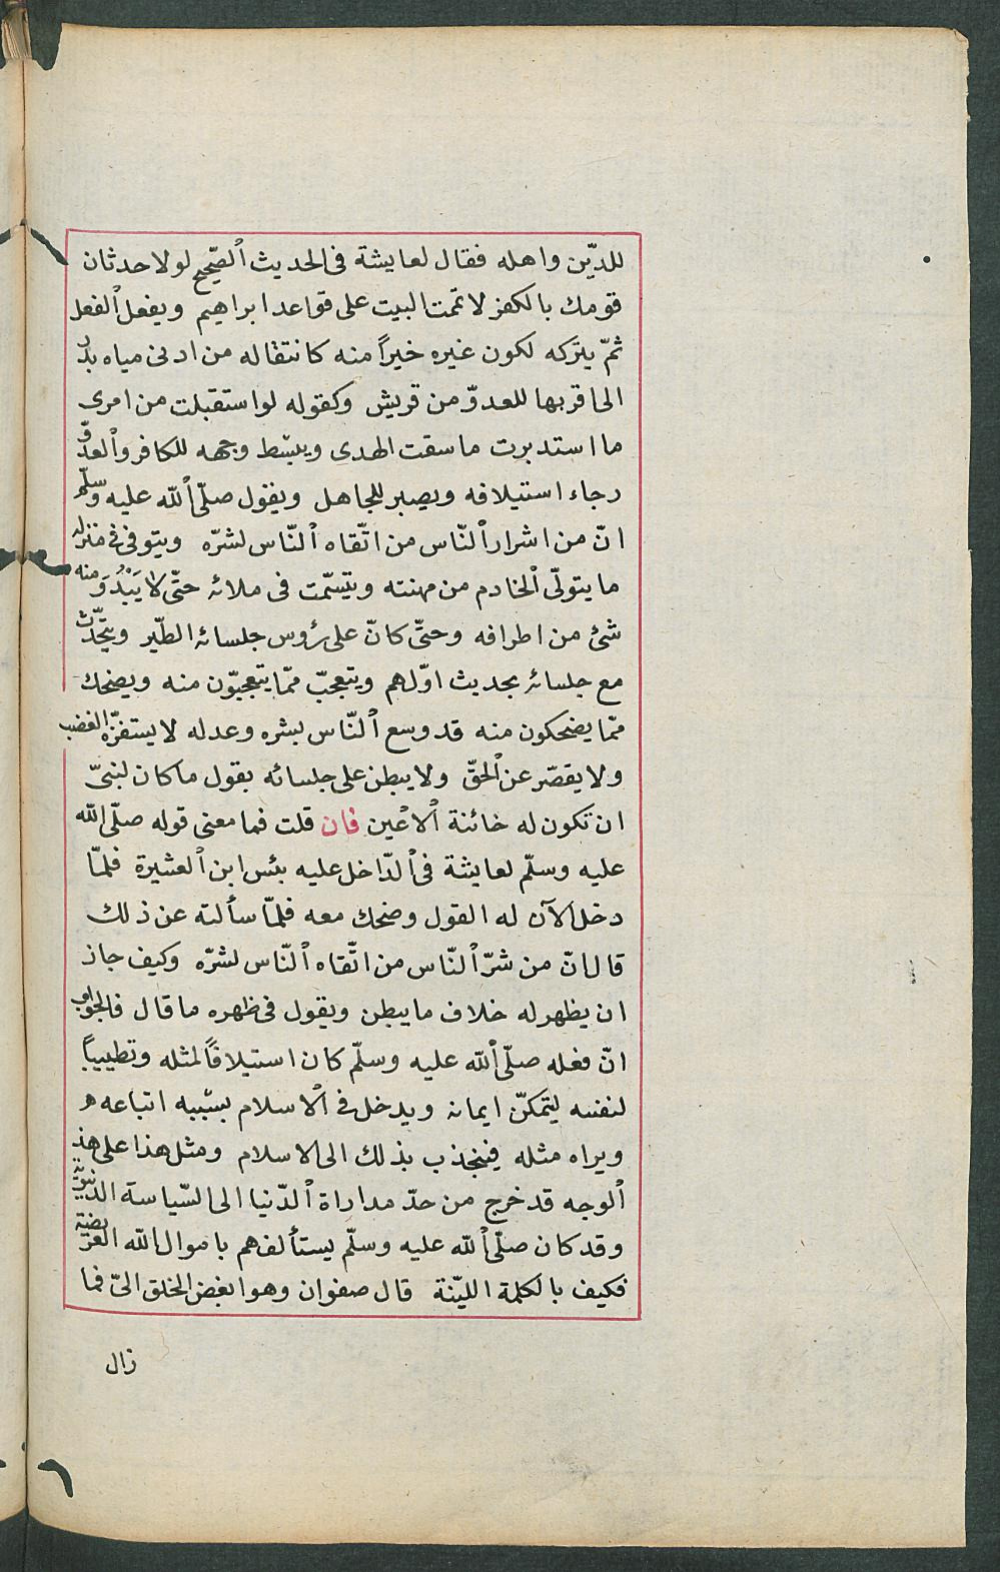 للدّين واهله فقال لعايشة فى الحديث الصّحيح لولا حدثان
قومك بالكفر لاتممت البيت على قواعد ابراهيم ويفعل الفعل
ثمّ يتركه لكون غيره خيراً منه كانتقاله من ادنى مياه بدر
الى اقربها للعدوّ من قريش وكقوله لواستقبلت من امرى
ما استدبرت ما سقت الهدى ويبسّط وجهه للكافر والعدوّ
رجاء استيلافه ويصبر للجاهل ويقول صلّى الله عليه وسلّم
انّ من اشرار النّاس من اتّقاه النّاس لشرّه ويتوفى فى منزله
ما يتولّى الخادم من مهنته ويتسّمت فى ملائه حتّى لا يَبْدُوَ منه
شئ من اطرافه وحتّى كانّ على رُوس جلسائه الطّير ويتحّدّث
مع جلسائه بحديث اوّلهم ويتعجبّ ممّا يتعجبّون منه ويضحك
ممّا يضحكون منه قد وسع النّاس بشره وعدله لا يستفزّه الغضب
ولا يقصّر عن الحقّ ولا يبطن على جلسائه يقول ما كان لنبىّ
ان تكون له خائنة الاعْين فان قلت فما معنى قوله صلّى الله
عليه وسلّم لعايشة فى الدّاخل عليه بئس ابن العشيرة فلمّا
دخل الآن له القول وضحك معه فلمّا سألته عن ذلك
قال انّ من شرّ النّاس من اتّقاه النّاس لشرّه وكيف جاز
ان يظهر له خلاف ما يبطن ويقول فى ظهره ما قال فالجواب
انّ فعله صلّى الله عليه وسلّم كان استيلافاً لمثله وتطييباً
لنفسه ليتمكّن ايمانه ويدخل فى الاسلام بسّببه اتباعه
ويراه مثله فينجذب بذلك الى الاسلام ومثل هذا على هذا
الوجه قد خرج من حدّ مداراة الدّنيا الى السّياسة الدّينيّة
وقد كان صلّى الله عليه وسلّم يستألفهم باموال الله العريضة
فكيف بالكلمة الليّنة قال صفوان وهو ابغض الخلق الىّ فما
زال